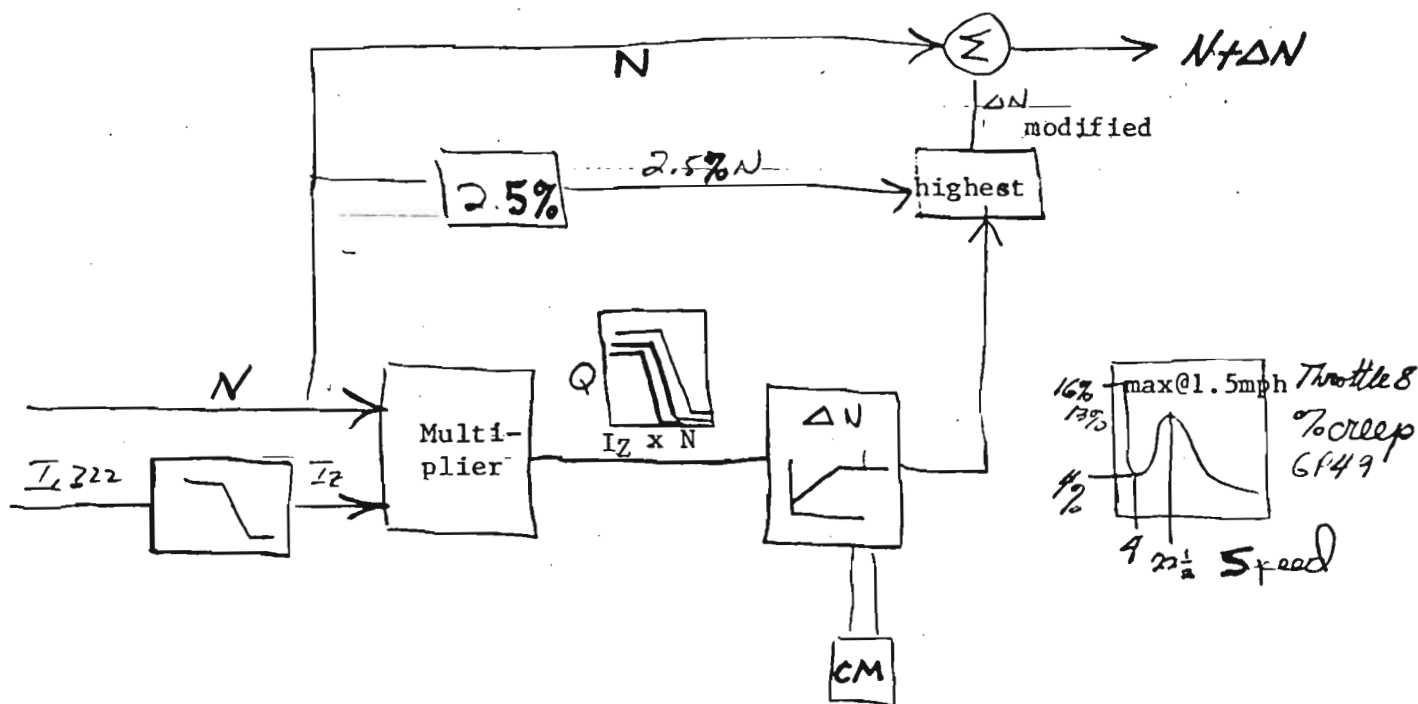 N
Σ
N+ΔN
ΔN
modified
2.5%
2.5%N
highest
N
Multi-
plier
Q
I_Z x N
ΔN
I_Z
CM
16%
max@1.5mph
Throttle 8
13%
% creep
GP49
4%
4
22½
Speed